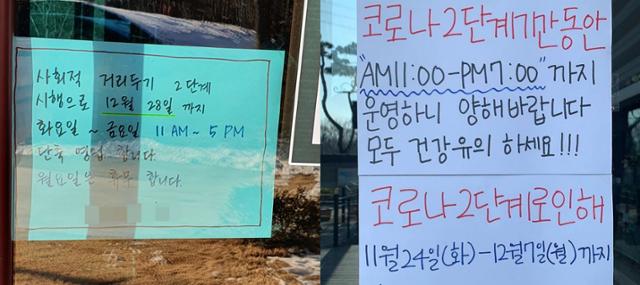 사회적 거리두기 2단계
시행으로 12월 28일 까지
화요일 ~ 금요일 11 AM ~ 5 PM
단축 영업 합니다.
월요일은 휴무 합니다.
코로나2단계기간동안
"AM11:00-PM7:00"까지
운영하니 양해바랍니다
모두 건강유의 하세요!!!
코로나2단계로인해
11월24일(화)-12월7일(월)까지